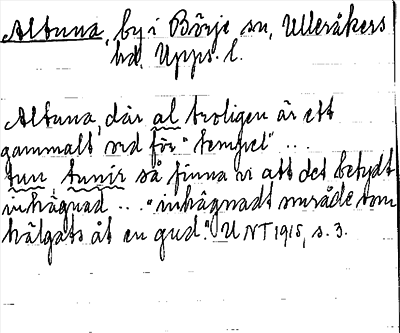 Altuna, by i Börje sn, Ulleråkers
hd, Upps. l.
Altuna, där al troligen är ett
gammalt ord för "tempel" ..
tun, tunir så finna vi att det betydt
inhägnad ... "inhägnadt område som
hälgats åt en gud." UNT 1915, s. 3.